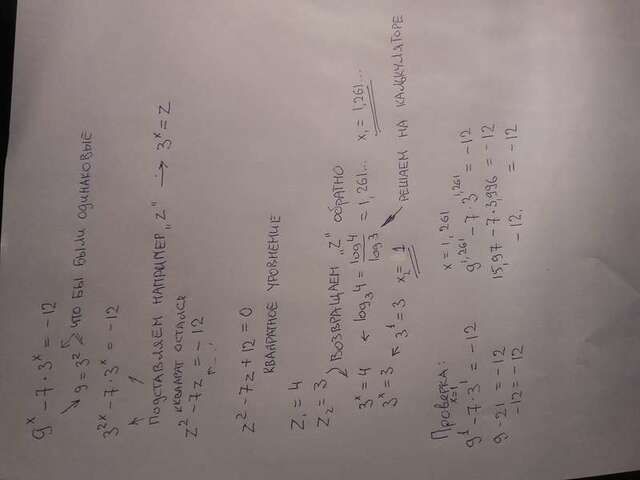 9^x - 7·3^x = -12
9=3^2 ЧТО БЫ БЫЛИ ОДИНАКОВЫЕ
3^2x - 7·3^x = -12
ПОДСТАВЛЯЕМ НАПРИМЕР „Z" → 3^x = Z
КВАДРАТ ОСТАЛСЯ
Z^2 - 7Z = -12
Z^2 - 7Z + 12 = 0
КВАДРАТНОЕ УРОВНЕНИЕ
Z₁ = 4
Z₂ = 3
ВОЗВРАЩАЕМ „Z" ОБРАТНО
3^x = 4 ← log₃4 = log4/log3 = 1,261... x₁ = 1,261...
3^x = 3 ↖ 3^1 = 3 x₂ = 1 РЕШАЕМ НА КАЛЬКУЛЯТОРЕ
ПРОВЕРКА:
x=1
9^1 - 7·3^1 = -12
9 - 21 = -12
-12 = -12
x = 1,261
9^1,261 - 7·3^1,261 = -12
15,97 - 7·3,996 = -12
-12, = -12